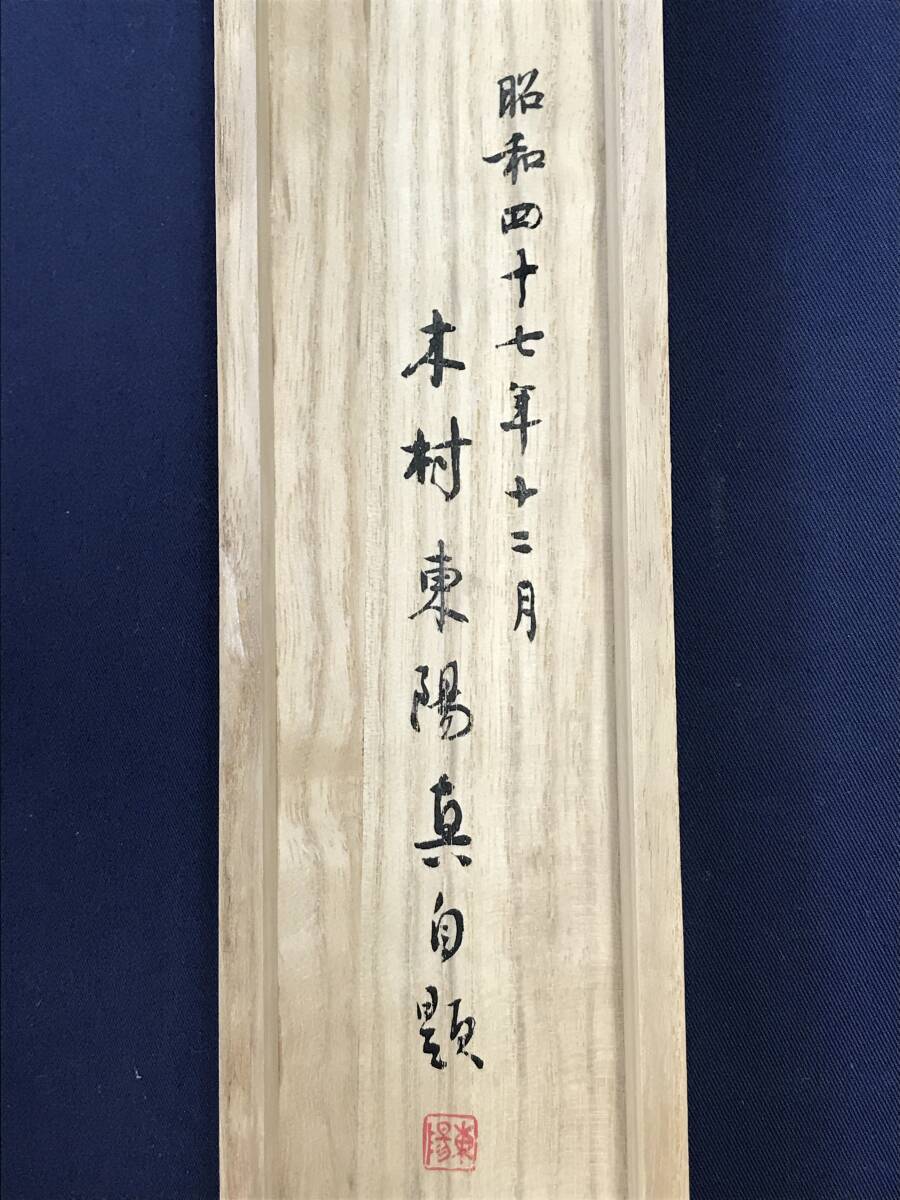 昭和四十七年十二月
木村東陽真自題
東陽